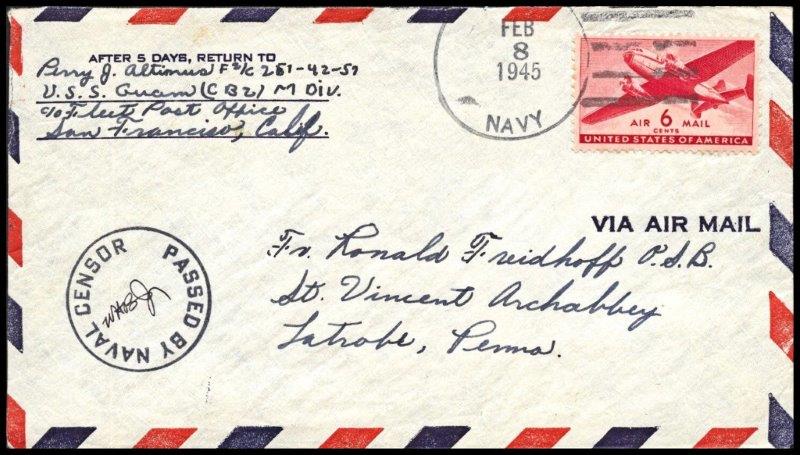 AFTER 5 DAYS, RETURN TO
Perry J. Altimus F 2/c 251-42-57
U.S.S. Guam (CB2) M Div.
c/o Fleet Post Office
San Francisco, Calif.
FEB
8
1945
NAVY
AIR 6 MAIL
CENTS
UNITED STATES OF AMERICA
VIA AIR MAIL
PASSED BY NAVAL CENSOR
Fr. Ronald Freidhoff O.S.B.
St. Vincent Archabbey
Latrobe, Penna.